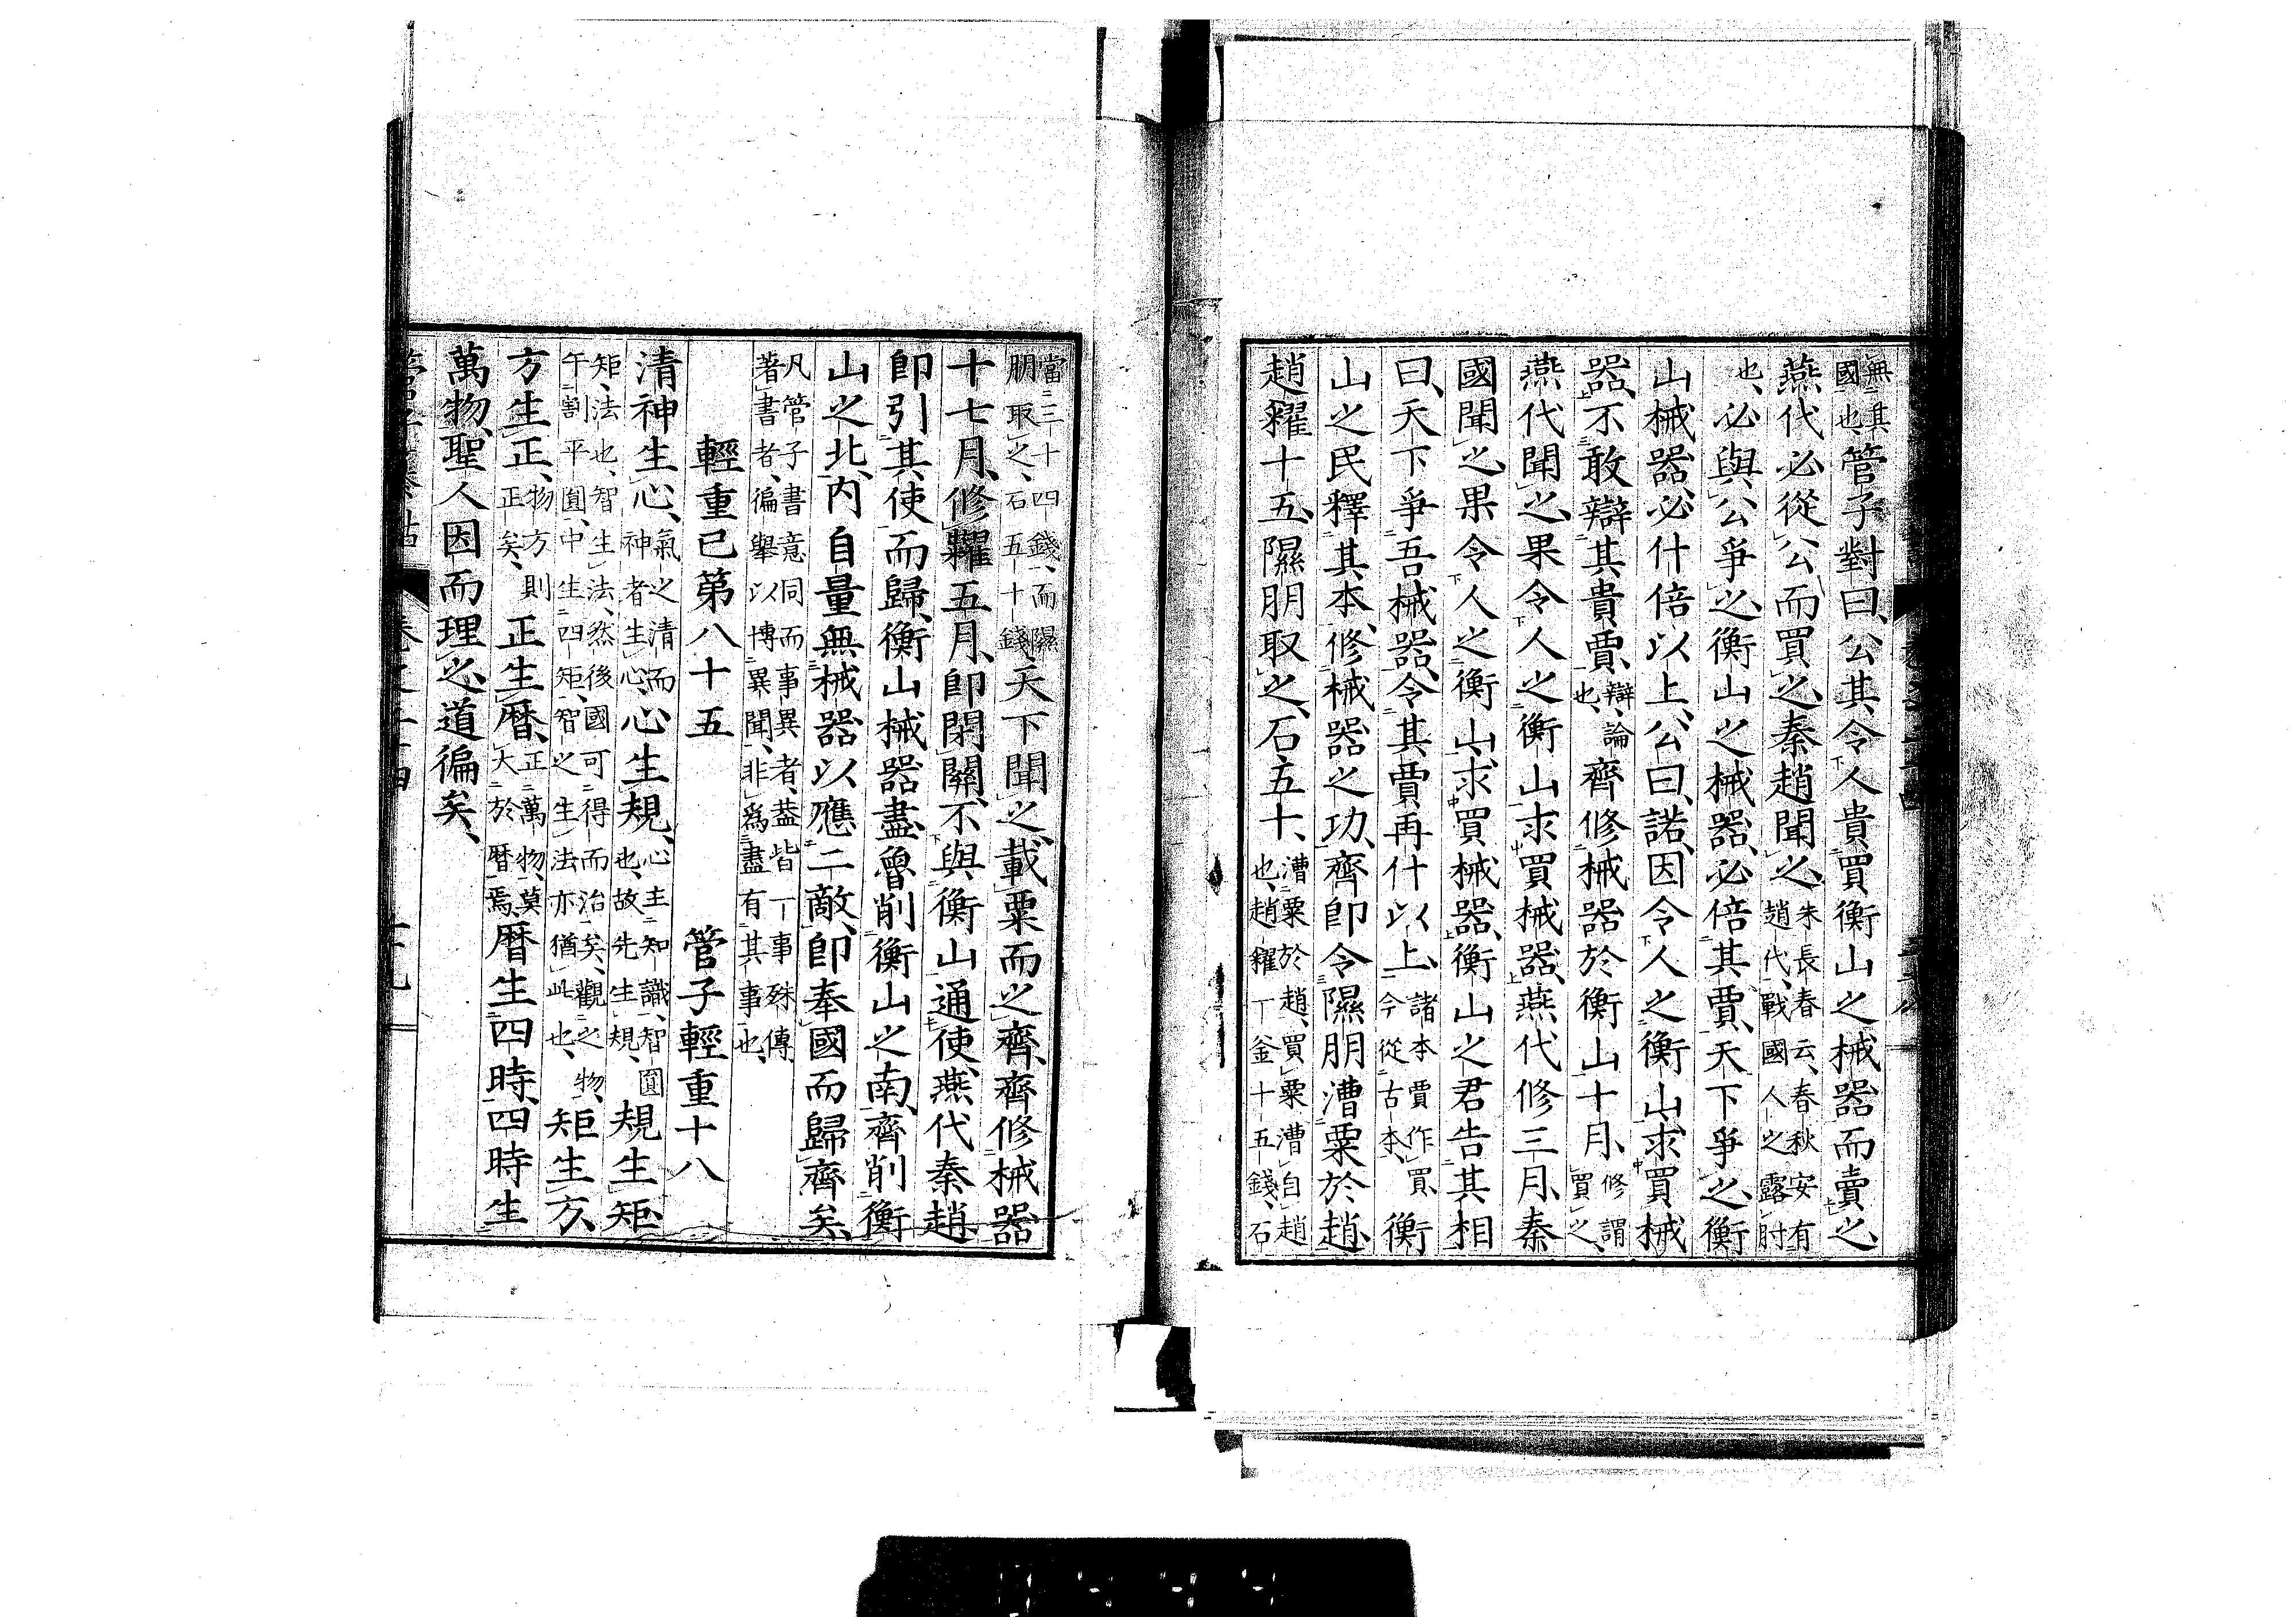 無其國也、管子對曰、公其令人貴買衡山之械器而賣之、
燕代必從公而買之、秦趙聞之、朱長春云、春秋安有趙代、戰國人之露肘
也、必與公爭之、衡山之械器、必倍其賈、天下爭之、衡
山械器、必什倍以上、公曰、諾、因令人之衡山、求買械
器、不敢辯其貴賈、辯、論也、齊修械器於衡山十月、修謂買之、
燕代聞之、果令人之衡山求買械器、燕代修三月、秦
國聞之、果令人之衡山、求買械器、衡山之君告其相
曰、天下爭吾械器、令其賈再什以上、諸本賈作買、今從古本、衡
山之民釋其本、修械器之功、齊卽令隰朋漕粟於趙、
趙糴十五、隰朋取之、石五十、漕粟於趙、買粟漕自趙也、趙糴一釜十五錢、石
當三十四錢、而隰朋取之、石五十錢、天下聞之、載粟而之齊、齊修械器
十七月、修糶五月、卽閉關、不與衡山通使、燕代秦趙、
卽引其使而歸、衡山械器盡、魯削衡山之南、齊削衡
山之北、內自量無械器以應二敵、卽奉國而歸齊矣、
凡管子書意同而事異者、蓋皆一事殊傳、著書者、徧擧以博異聞、非爲盡有其事也、
輕重己第八十五　管子輕重十八
清神生心、氣之清而神者生心、心生規、心主知識、智圓也、故先生規、規生矩、
矩、法也、智生法、然後國可得而治矣、觀之物、午割平圓、中生四矩、智之生法亦猶此也、矩生方、
方生正、物方則正矣、正生曆、正萬物、莫大於曆焉、曆生四時、四時生
萬物、聖人因而理之、道徧矣、